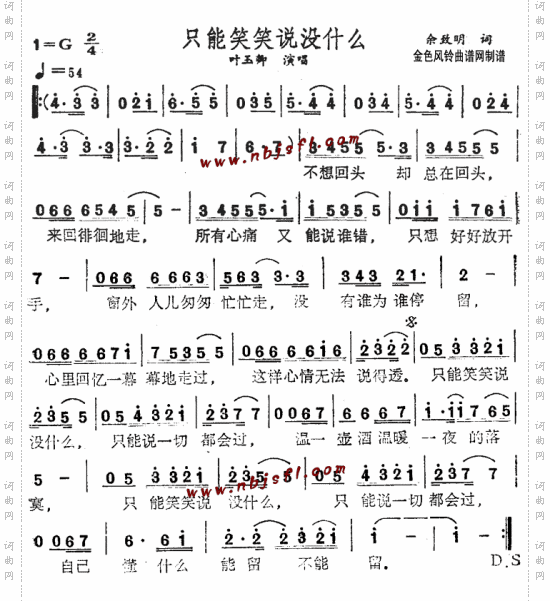 只能笑笑说没什么
1=G 2/4
余致明 词
叶玉卿 演唱
金色风铃曲谱网制谱
♩=54
‖:(4·3 3 | 0 2 1 | 6·5 5 | 0 3 5 | 5·4 4 | 0 3 4 | 5·4 4 | 0 2 4 |
4·3 3·3 | 3·2 2 | i 7 | 6·7) | 3·4 5 5 5·3 | 3 4 5 5 5 |
www.nbjsfl.com
不想回头 却 总在回头,
0 6 6 6 5 4 5 | 5 - | 3 4 5 5 5·i | i 5 3 5 5 | 0 i i i 7 6 i |
来回徘徊地走, 所有心痛 又 能说谁错, 只想 好好放开
7 - | 0 6 6 6 6 6 3 | 5 6 3 3·3 | 3 4 3 2 1· | 2 - |
手, 窗外 人儿匆匆 忙忙走, 没 有谁为 谁停 留,
0 6 6 6 6 6 7 i | 7 5 3 5 5 | 0 6 6 6 6 i 6 | 2 3 2 2 | 0 5 3 3 2 i |
心里回忆一幕 幕地走过, 这样心情无法 说得透。 只能笑笑说
2 3 5 5 | 0 5 4 3 2 i | 2 3 7 7 | 0 0 6 7 | 6 6 6 7 | i·i i 7 6 5 |
没什么, 只能说一切 都会过, 温一 壶酒温暖 一夜的落
5 - | 0 5 3 3 2 i | 2 3 5 5 | 0 5 4 3 2 i | 2 3 7 7 |
寞, 只 能笑笑说 没什么, 只 能说一切 都会过,
www.nbjsfl.com
0 0 6 7 | 6·6 i | 2·2 2 3 2 i | i - | i - :‖
自己 懂 什么 能留 不能 留. D.S
词曲网
词曲网
词曲网
词曲网
词曲网
词曲网
词曲网
词曲网
词曲网
词曲网
词曲网
词曲网
词曲网
词曲网